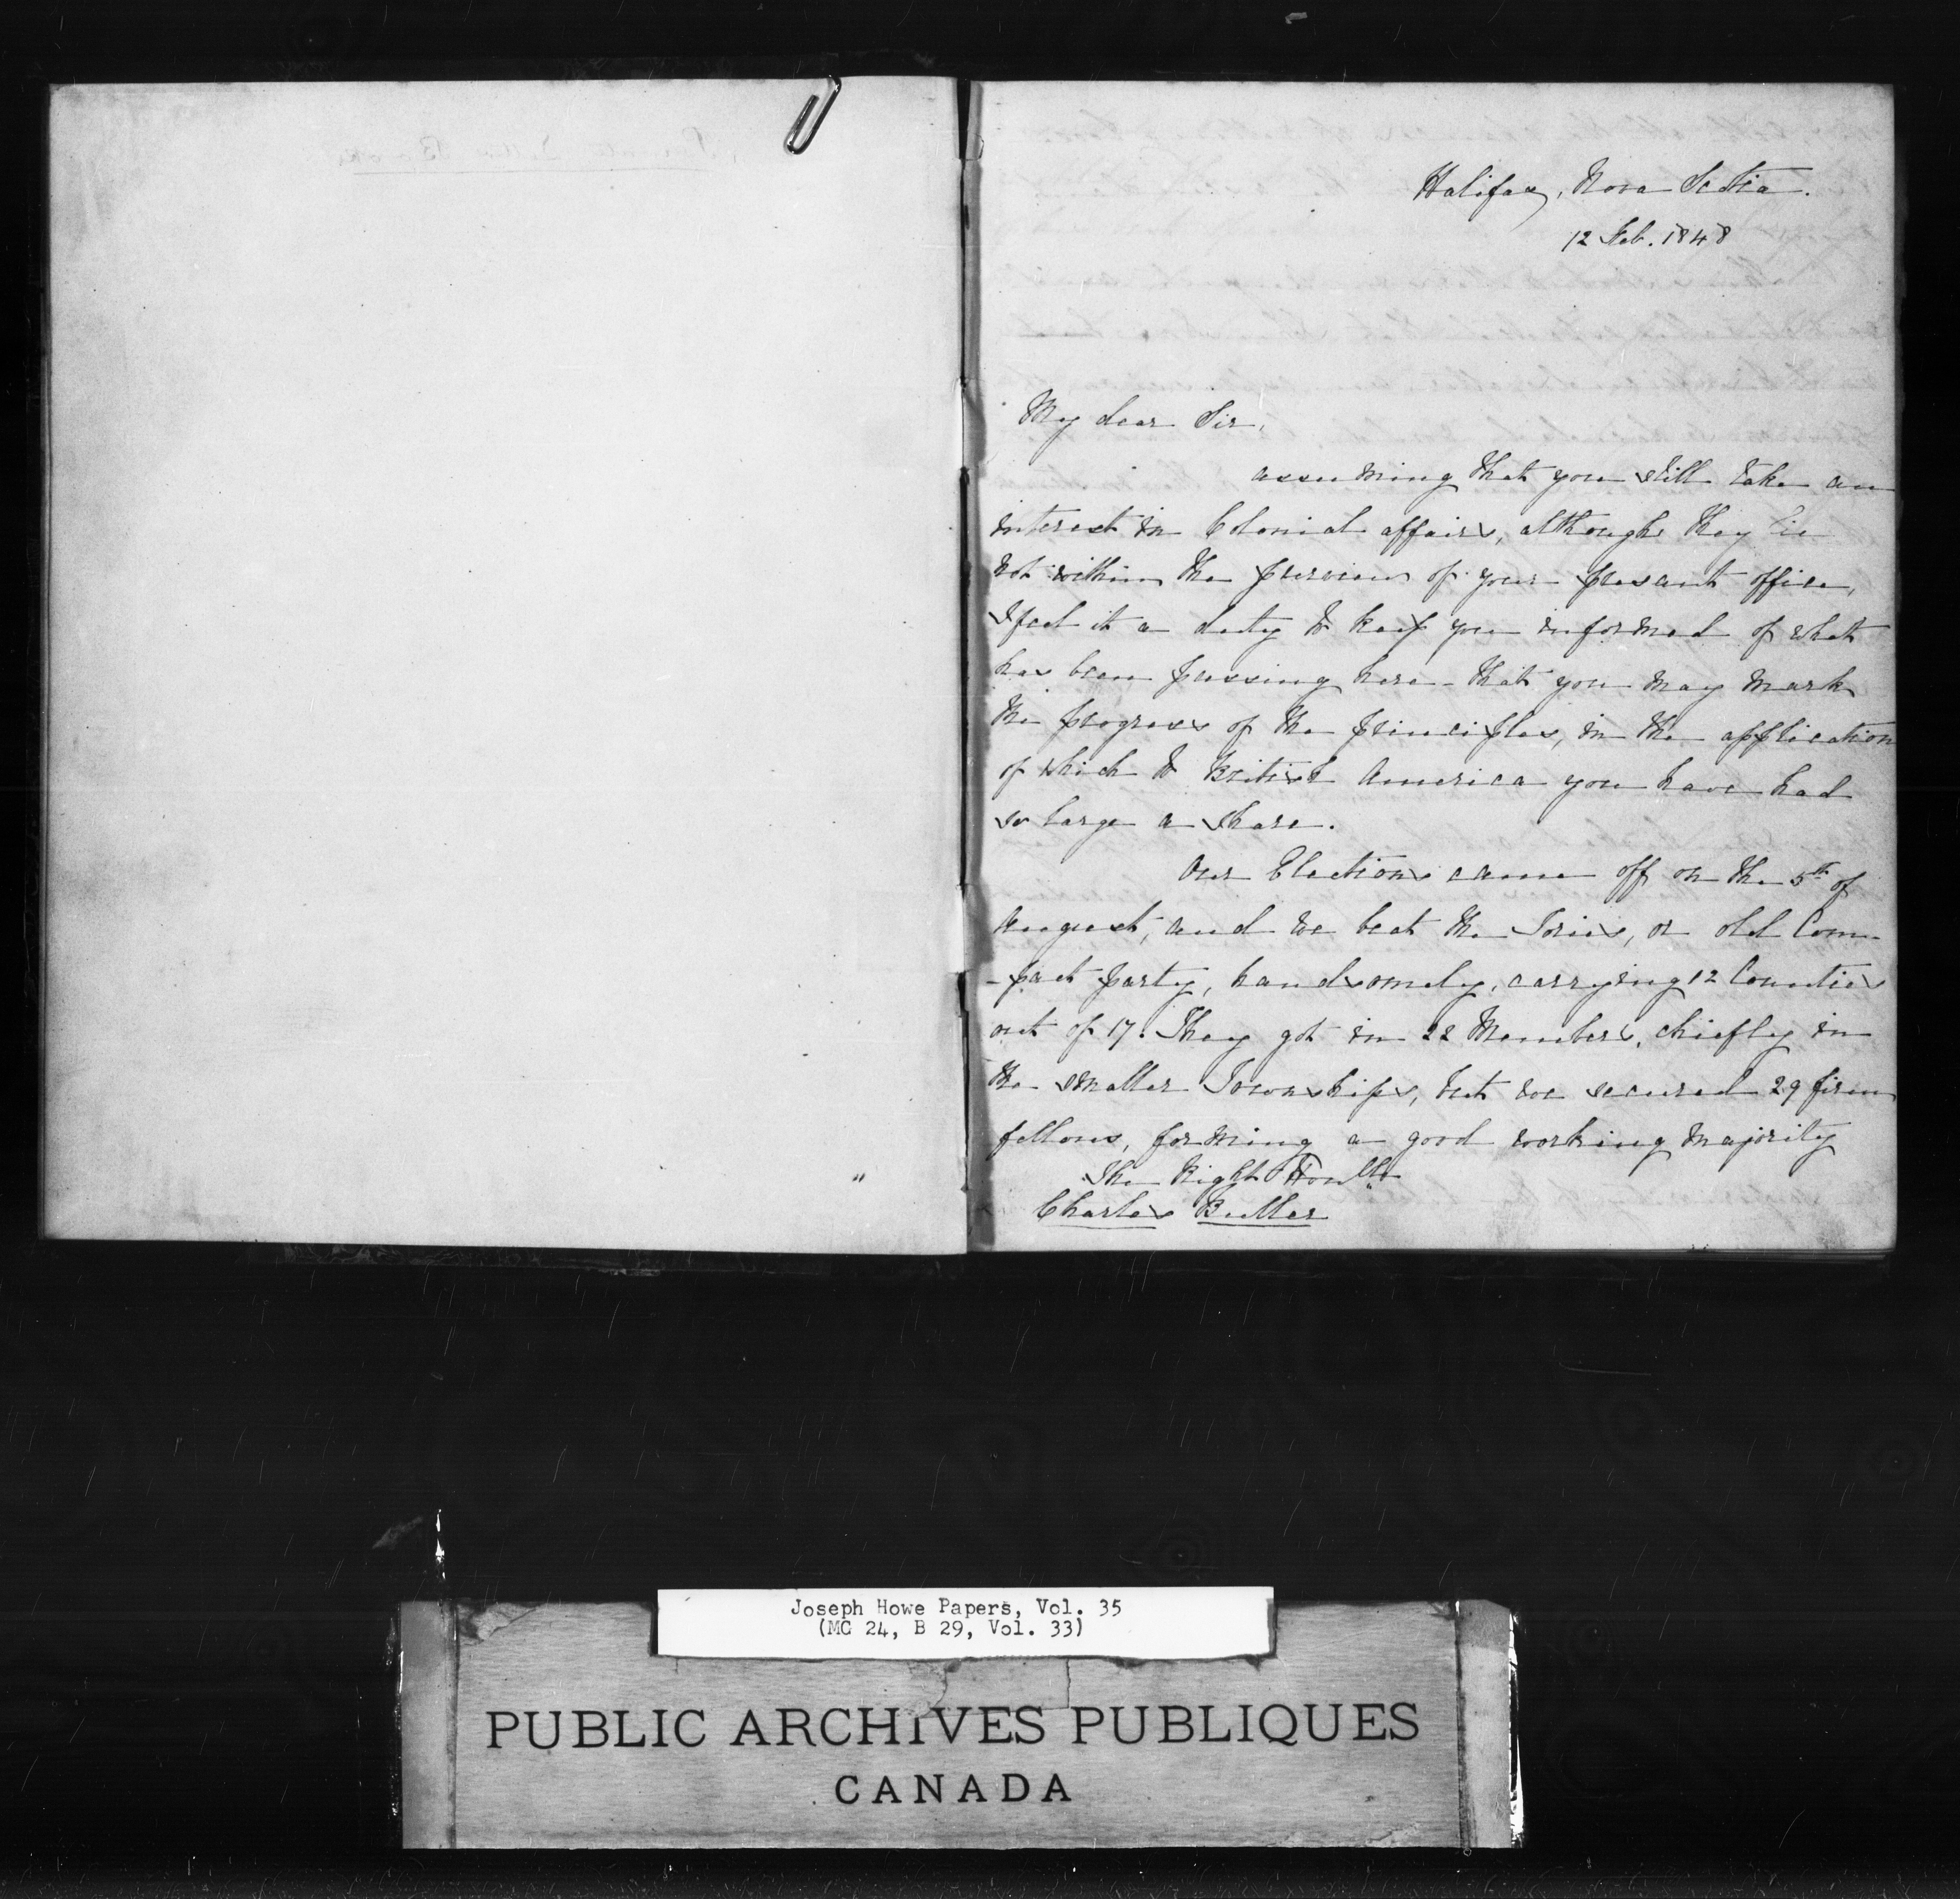 Halifax, Nova Scotia.
12 Feb. 1848
My dear Sir,
assuming that you still take an
interest in Colonial affairs, although they lie
not within the purview of your present office,
I feel it a duty to keep you informed of what
has been passing here - that you may mark
the progress of the principles, in the application
of which to British America you have had
so large a share.
Our Elections came off on the 5th of
August, and we beat the Tories, or old Com-
-pact party, handsomely, carrying 12 Counties
out of 17. They got in 22 Members, chiefly in
the smaller Townships, but we secured 29 firm
fellows, forming a good working majority
The Right Honble
Charles Buller
Joseph Howe Papers, Vol. 35
(MG 24, B 29, Vol. 33)
PUBLIC ARCHIVES PUBLIQUES
CANADA